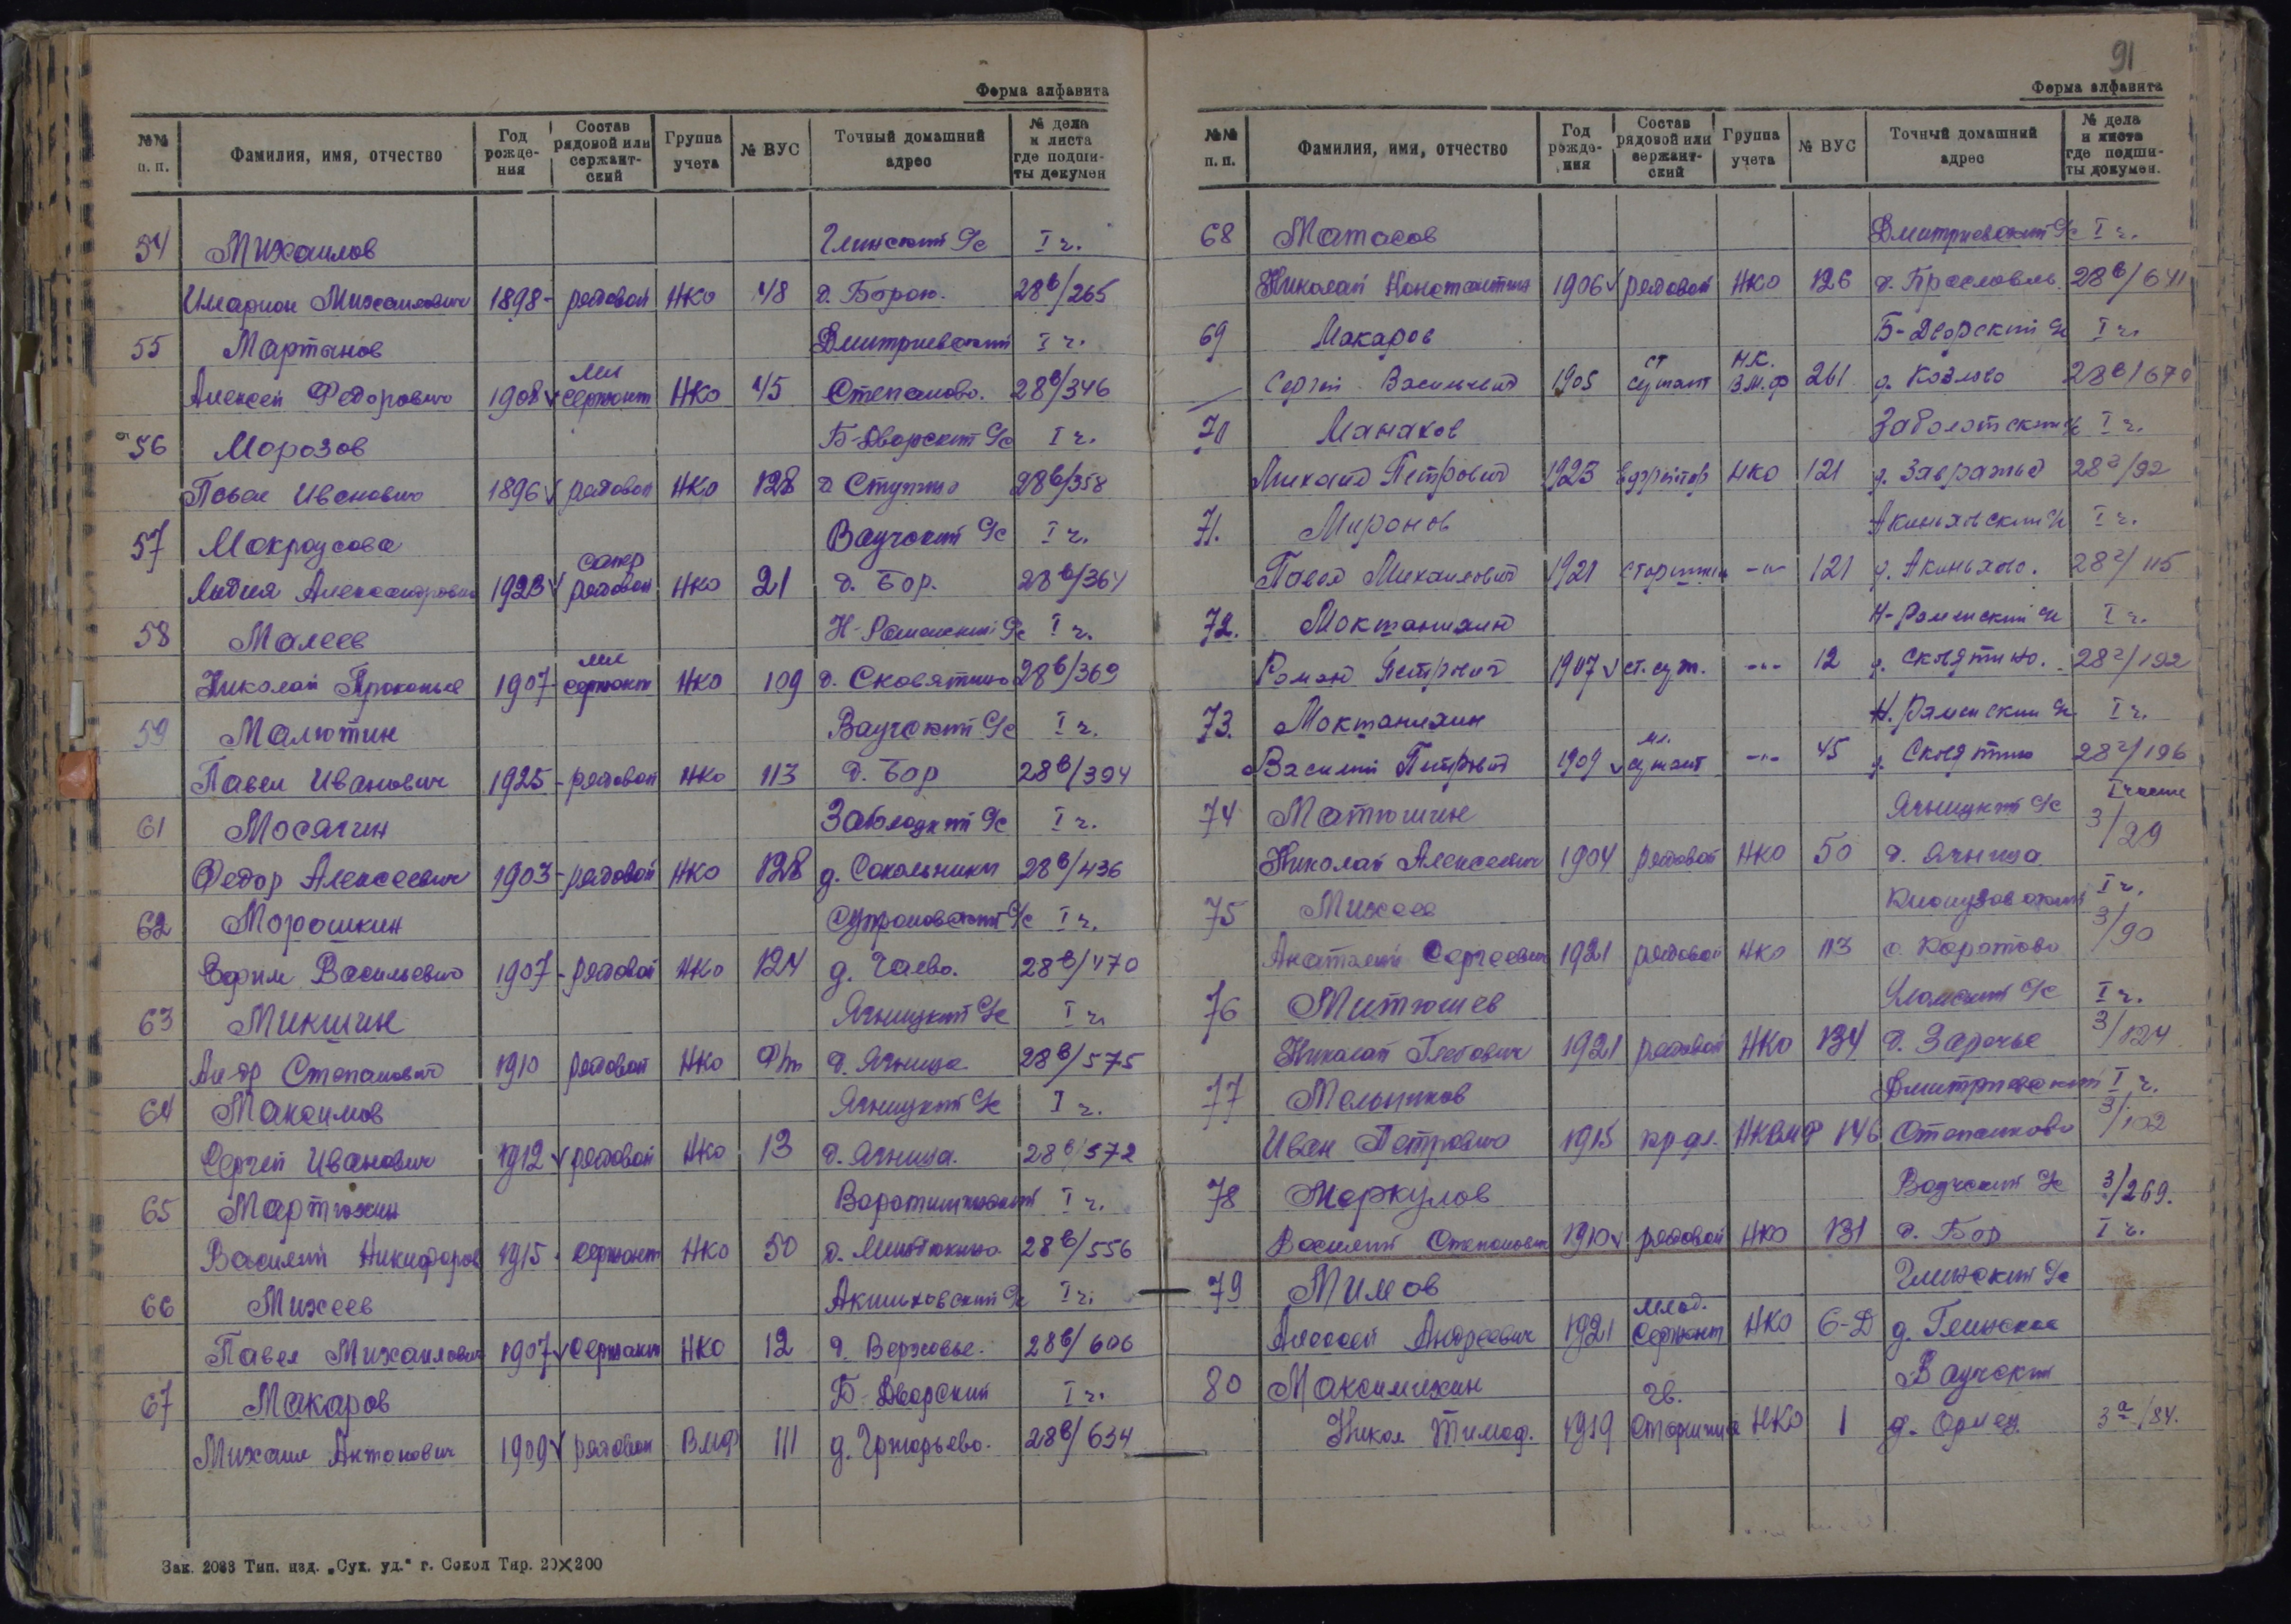 Форма алфавита
№№ п. п. Фамилия, имя, отчество Год рожде-ния Состав рядовой или сержант-ский Группа учета № ВУС Точный домашний адрес № дела и листа где подши-ты докумен
54 Михайлов Глинский С/с I ч.
Иларион Михайлович 1898 - рядовой НКО 48 д. Борок. 28в/265
55 Мартынов Дмитриевский I ч.
Алексей Федорович 1908 v мл сержант НКО 45 Степаново. 28в/346
56 Морозов Б-Дворский С/с I ч.
Павел Иванович 1896 v рядовой НКО 128 д Ступино 28в/358
57 Мокроусова Ваучский С/с I ч.
Лидия Александровна 1923 v рядовой НКО 21 д. Бор. 28в/364
58 Малеев Н-Раменский С/с I ч.
Николай Прокопье 1907 - мл сержант НКО 109 д. 28в/369
59 Малютин Ваучский С/с I ч.
Павел Иванович 1925 - рядовой НКО 113 д. Бор 28в/394
61 Мосягин Заболоцкий С/с I ч.
Федор Алексеевич 1903 - рядовой НКО 128 д. Сокольники 28в/436
62 Морошкин I ч.
Ефим Васильевич 1907 - рядовой НКО 124 д. Чаево. 28в/470
63 Микшин Ягницкий С/с I ч
Ал-др Степанович 1910 рядовой НКО д. Ягница 28в/575
64 Максимов Ягницкий С/с I ч.
Сергей Иванович 1912 v рядовой НКО 13 д. Ягница. 28в/572
65 Мартюхин I ч.
Василий Никифоров 1915 сержант НКО 50 д. 28в/556
66 Михеев Акиньховский С/с I ч.
Павел Михайлович 1907 v Сержант НКО 12 д. Верховье. 28в/606
67 Макаров Б-Дворский I ч.
Михаил Антонович 1909 v рядовой ВМФ 111 д. Григорьево. 28в/634
Зак. 2033 Тип. изд. „Сух. уд.“ г. Сокол Тир. 20×200
91
Форма алфавита
№№ п. п. Фамилия, имя, отчество Год рожде-ния Состав рядовой или сержант-ский Группа учета № ВУС Точный домашний адрес № дела и листа где подши-ты докумен.
68 Матасов Дмитриевский С/с I ч.
Николай Константин 1906 v рядовой НКО 126 д. 28в/641
69 Макаров Б-Дворский С/с I ч.
Сергей Васильевич 1905 ст сержант Н.К. В.М.Ф 261 д. Козлово 28в/670
70 Манахов Заболотский С/с I ч.
Михаил Петрович 1923 ефрейтор НКО 121 д. Завражье 28г/92
71. Миронов Акиньховский С/с I ч.
Павел Михайлович 1921 старшина -"- 121 д. Акиньхово. 28г/115
72. Моктанихин Н-Раменский С/с I ч.
Роман Петрович 1907 v ст. серж. -"- 12 д. Склятино. 28г/192
73. Моктанихин Н. Раменский С/с I ч.
Василий Петрович 1909 v мл. сержант -"- 45 д. Склятино 28г/196
74 Матюшин Ягницкий С/с I часть
Николай Алексеевич 1904 рядовой НКО 50 д. Ягница 3/29
75 Михеев I ч.
Анатолий Сергеевич 1921 рядовой НКО 113 с. Коротово 3/90
76 Митюшев Уломский С/с I ч.
Николай Глебович 1921 рядовой НКО 134 д. Заречье 3/124
77 Мельников Дмитриевский I ч.
Иван Петрович 1915 НКВМФ 146 Степаново
78 Меркулов Ваучский С/с 3/269.
Василий Степанович 1910 v рядовой НКО 131 д. Бор I ч.
79 Мимов Глинский С/с
Алексей Андреевич 1921 млад. Сержант НКО 6-Д д. Глинское
80 Максимихин Ваучский
Никол. Тимоф. 1919 гв. Старшина НКО 1 д. 3а/84.